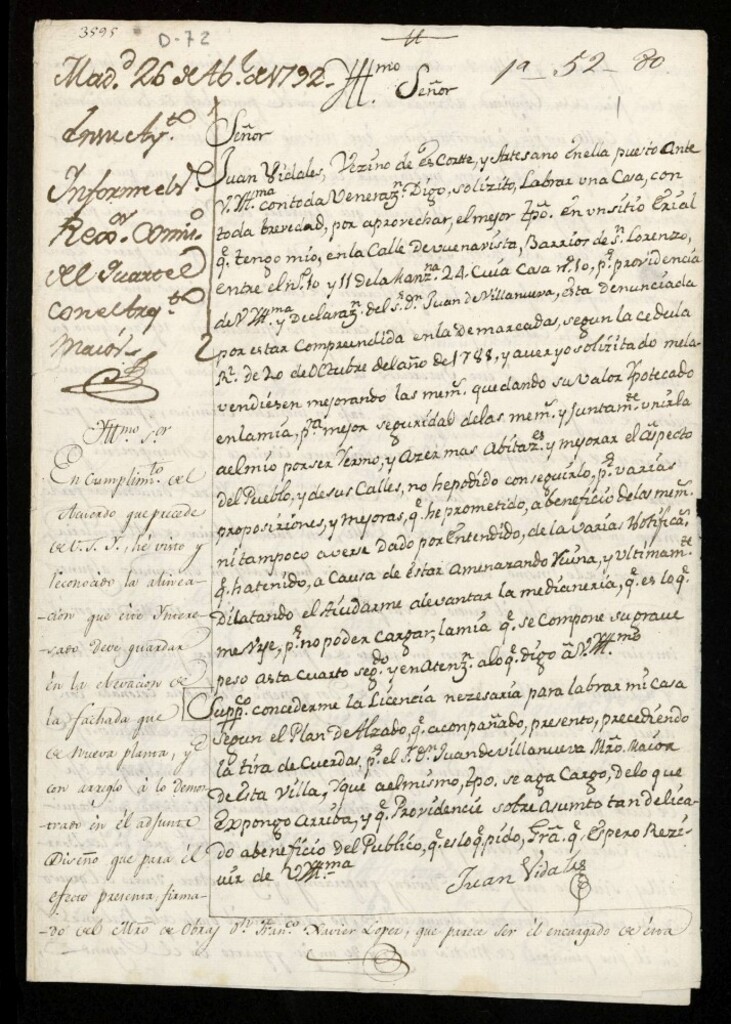 3595
D-72
1ª - 52 - 80
1
Mad.d 26 de Ab.l de 1792.
En su Ay.to
Informe el S.r
Rex.or Comis.o
del Quartel
con el Arq.to
Maior
Yll.mo Señor
Señor
Juan Vidales, Vezino de esta Corte, y Artesano en ella puesto Ante
V.Yll.ma con toda Veneraz.n Digo, solizito, Labrar una Casa, con
toda brevedad, por aprovechar, el mejor tpo. en un sitio Erial
q.e tengo mio, en la Calle de buenavista, Barrios de s.n Lorenzo,
entre el n.º 10 y 11 de la manz.na 24. Cuia Casa n.º 10, p.r providencia
de V.Yll.ma y Declaraz.n del s.r D.n Juan de Villanueva, esta denunciada
por estar Comprendida en la Demarcadas, segun la cedula
R.l de 20 de Octubre del año de 1788, y aver yo solizitado me la
vendiesen mejorando las mem.s quedando su valor Ypotecado
en la mia, p.a mejor seguridad de las mem.s y Juntam.te unirla
a el mio por ser Yermo, y Azer mas Abitaz.es y mejorar el Aspecto
del Pueblo, y de sus Calles, no he podido conseguirlo, p.r varias
proposiziones, y mejoras, q.e he prometido, a beneficio de las mem.s
ni tampoco averse dado por Entendido, de la varias Notificaz.s
q.e ha tenido, a Causa de estar amenazando Ruina, y Ultimam.te
Dilatando el Aiudarme a levantar la medianeria, q.e es lo q.e
me Urje, p.r no poder Cargar, la mia q.e se Compone su grave
peso asta Cuarto seg.do y en Atenz.n a lo q.e digo â V.Yll.ma
Supp.co concederme la Licencia nezesaria para labrar mi Casa
segun el Plan de Alzado, q.e acompañado, presento, precediendo
la tira de Cuerdas p.r el S.r D.n Juan de Villanueva Mro. Maior
de Esta Villa, Y que a el mismo, tpo. se aga Cargo, de lo que
Expongo Arriba, y q.e Providencie sobre Asumto tan delica-
do a beneficio del Publico, q.e es lo q.e pido, Gra. q.e Espero Rezi-
vir de V.Yll.ma
Juan Vidales
Yll.mo S.or
En Cumplim.to del
Acuerdo que precede
de V.S.Y., he visto y
reconocido la alinea-
-cion que este Yntere-
-sado deve guardar
en la elevacion de
la fachada que
de nueva planta, y
con arreglo â lo demos-
-trado en el adjunto
Diseño que para el
efecto presenta, firma-
-do del Mro de Obras d.n Fran.co Xavier Lopez, que parece ser el encargado de esta